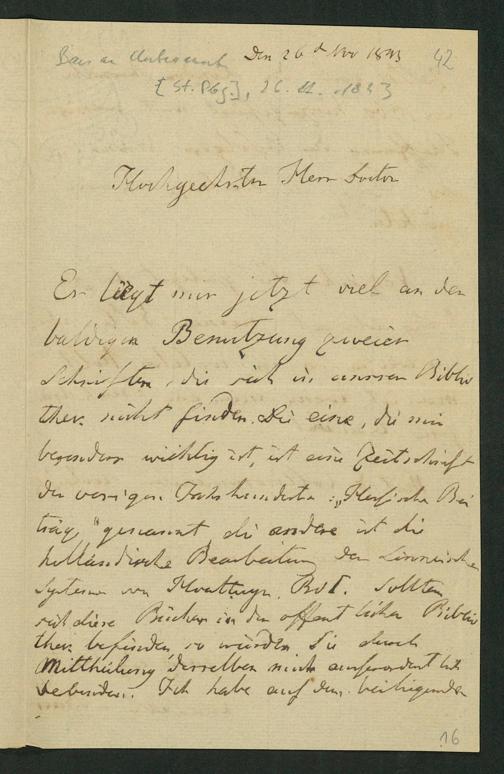 Baer an Unbekannt Den 26 d Nov 1843 42
[St. Pbg.], 26. 11. 1843
Hochgeehrter Herr Doctor
Es liegt mir jetzt viel an der
baldigen Benutzung zweier
Schriften, die sich in unsrer Biblio
thek nicht finden. Die eine, die mir
besonders wichtig ist, ist eine Zeitschrift
des vorigen Jahrhunderts: „Hessische Bei
träge" genannt die andere ist die
holländische Bearbeitung des Linneischen
Systems von Houttuyn. Bd I. Sollten
sich diese Bücher in der öffentlichen Biblio
thek befinden, so würden Sie durch
Mittheilung derselben mich ausserordentlich
verbinden. Ich habe auf dem beiliegenden
16